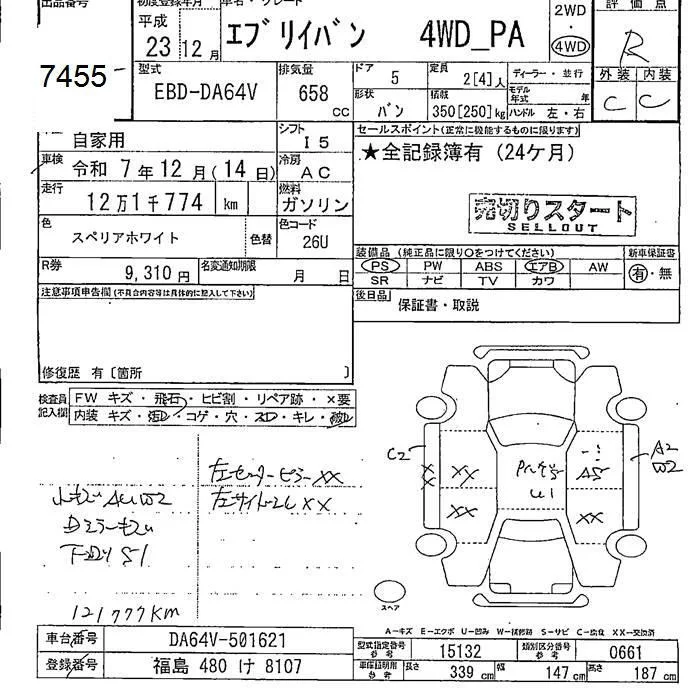 出品番号 初度登録年月 車名・グレード 2WD 評価点
平成 23 12月 エブリイバン 4WD_PA 4WD R
7455 型式 排気量 ドア 5 定員 2[4]人 ディーラー・並行 外装 内装
EBD-DA64V 658 cc 形状 バン 積載 350[250]kg モデル年式 年 ハンドル 左・右 C C
自家用 シフト I5 セールスポイント(正常に機能するものに限ります)
車検 令和 7年12月(14日) 冷房 AC ★全記録簿有 (24ケ月)
走行 12万1千774 km 燃料 ガソリン
売切りスタート
SELLOUT
色 スペリアホワイト 色替 色コード 26U
装備品 (純正品に限り○をつけてください) 新車保証書
PS PW ABS エアB AW 有・無
SR ナビ TV カワ
R券 9,310円 名変通知期限 月 日
後日品 保証書・取説
注意事項申告欄(不具合内容等は具体的に記入して下さい)
修復歴 有〔箇所 〕
検査員記入欄 FW キズ・飛石・ヒビ割・リペア跡・×要
内装 キズ・コゲ・穴・キレ
C2 XX XX XX XX A2 W2
A5 U1
左センターピラーXX
左サイドシルXX
121777KM
スペア
A-キズ E-エクボ U-凹み W-補修跡 S-サビ C-腐食 XX-交換済
車台番号 DA64V-501621 型式指定番号 参考 15132 類別区分番号 参考 0661
登録番号 福島 480 け 8107 車庫証明用 参考 長さ 339 cm 幅 147 cm 高さ 187 cm